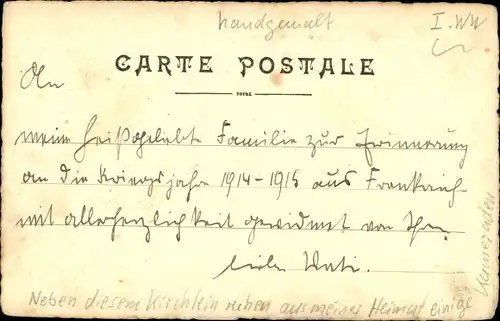 handgemalt
I. WK
CARTE POSTALE
An
meine heißgeliebte Familie zur Erinnerung
an die Kriegsjahre 1914-1915 aus Frankreich
mit allerherzlichkeit gewidmet von Ihrem
lieben Vati.
Neben diesem Kirchlein ruhen aus meiner Heimat einige
Kameraden